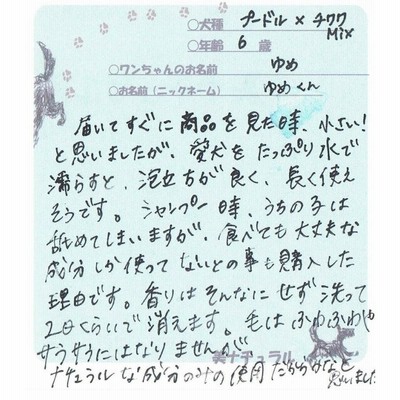 ○犬種 プードル × チワワ
Mix
○年齢 6 歳
○ワンちゃんのお名前 ゆめ
○お名前(ニックネーム) ゆめくん
届いてすぐに商品を見た時、小さい!
と思いましたが、愛犬をたっぷり水で
濡らすと、泡立ちが良く、長く使え
そうです。シャンプー時、うちの子は
舐めてしまいますが、食べても大丈夫な
成分しか使ってないとの事も購入した
理由です。香りはそんなにせず洗って
2日くらいで消えます。毛はふわふわや
サラサラにはなりませんが
美ナチュラル
ナチュラルな成分のみの使用だからかなと
思いました